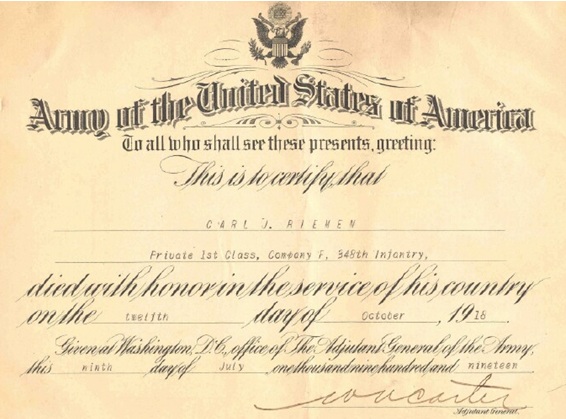 Army of the United States of America
To all who shall see these presents, greeting:
This is to certify that
CARL J. RIEMEN
Private 1st Class, Company F, 348th Infantry,
died with honor in the service of his country
on the twelfth day of October , 1918 .
Given at Washington, D.C., office of The Adjutant General of the Army,
this ninth day of July , one thousand nine hundred and nineteen
Adjutant General.